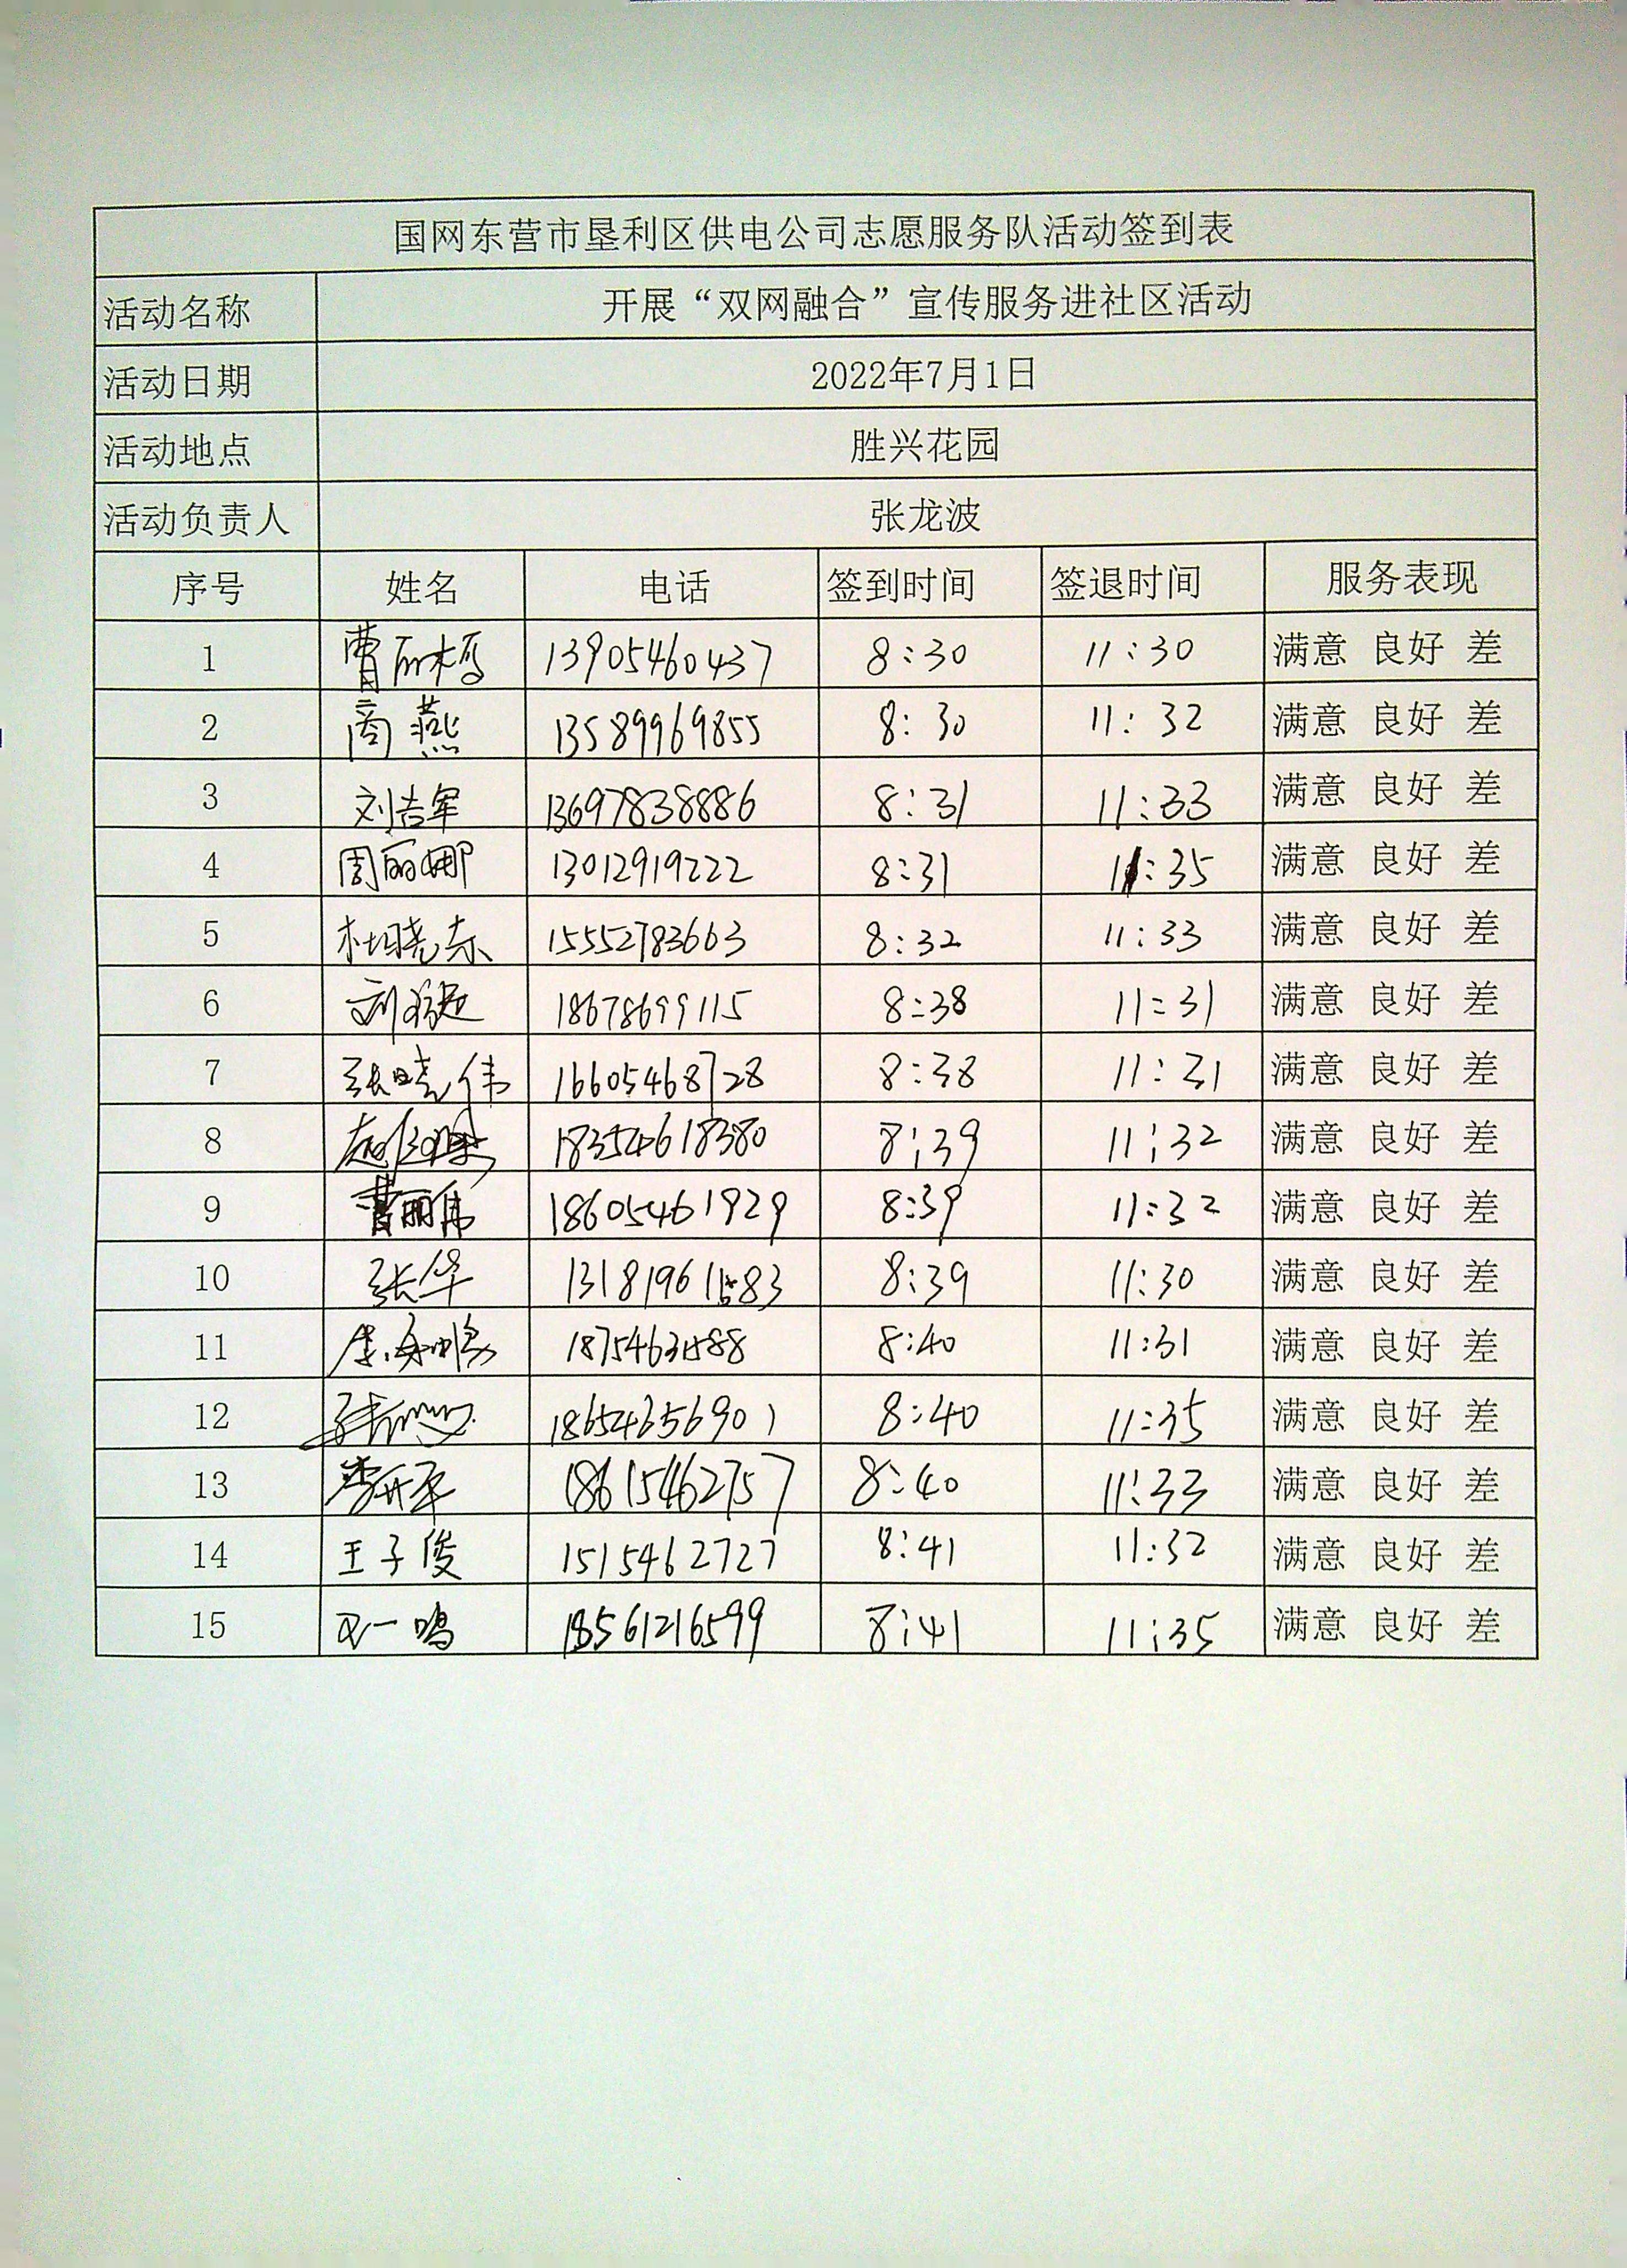 国网东营市垦利区供电公司志愿服务队活动签到表
活动名称 开展“双网融合”宣传服务进社区活动
活动日期 2022年7月1日
活动地点 胜兴花园
活动负责人 张龙波
序号 姓名 电话 签到时间 签退时间 服务表现
1 曹丽梅 13905460437 8:30 11:30 满意 良好 差
2 商燕 13589969855 8:30 11:32 满意 良好 差
3 刘吉军 13697838886 8:31 11:33 满意 良好 差
4 周丽娜 13012919222 8:31 11:35 满意 良好 差
5 杜晓东 15552783663 8:32 11:33 满意 良好 差
6 18678699115 8:38 11:31 满意 良好 差
7 张晓伟 16605468728 8:38 11:31 满意 良好 差
8 18354618380 8:39 11:32 满意 良好 差
9 曹丽伟 18605461929 8:39 11:32 满意 良好 差
10 张华 8:39 11:30 满意 良好 差
11 8:40 11:31 满意 良好 差
12 18654656901 8:40 11:35 满意 良好 差
13 李开军 18615462757 8:40 11:33 满意 良好 差
14 王子俊 1515462727 8:41 11:32 满意 良好 差
15 18561216599 8:41 11:35 满意 良好 差